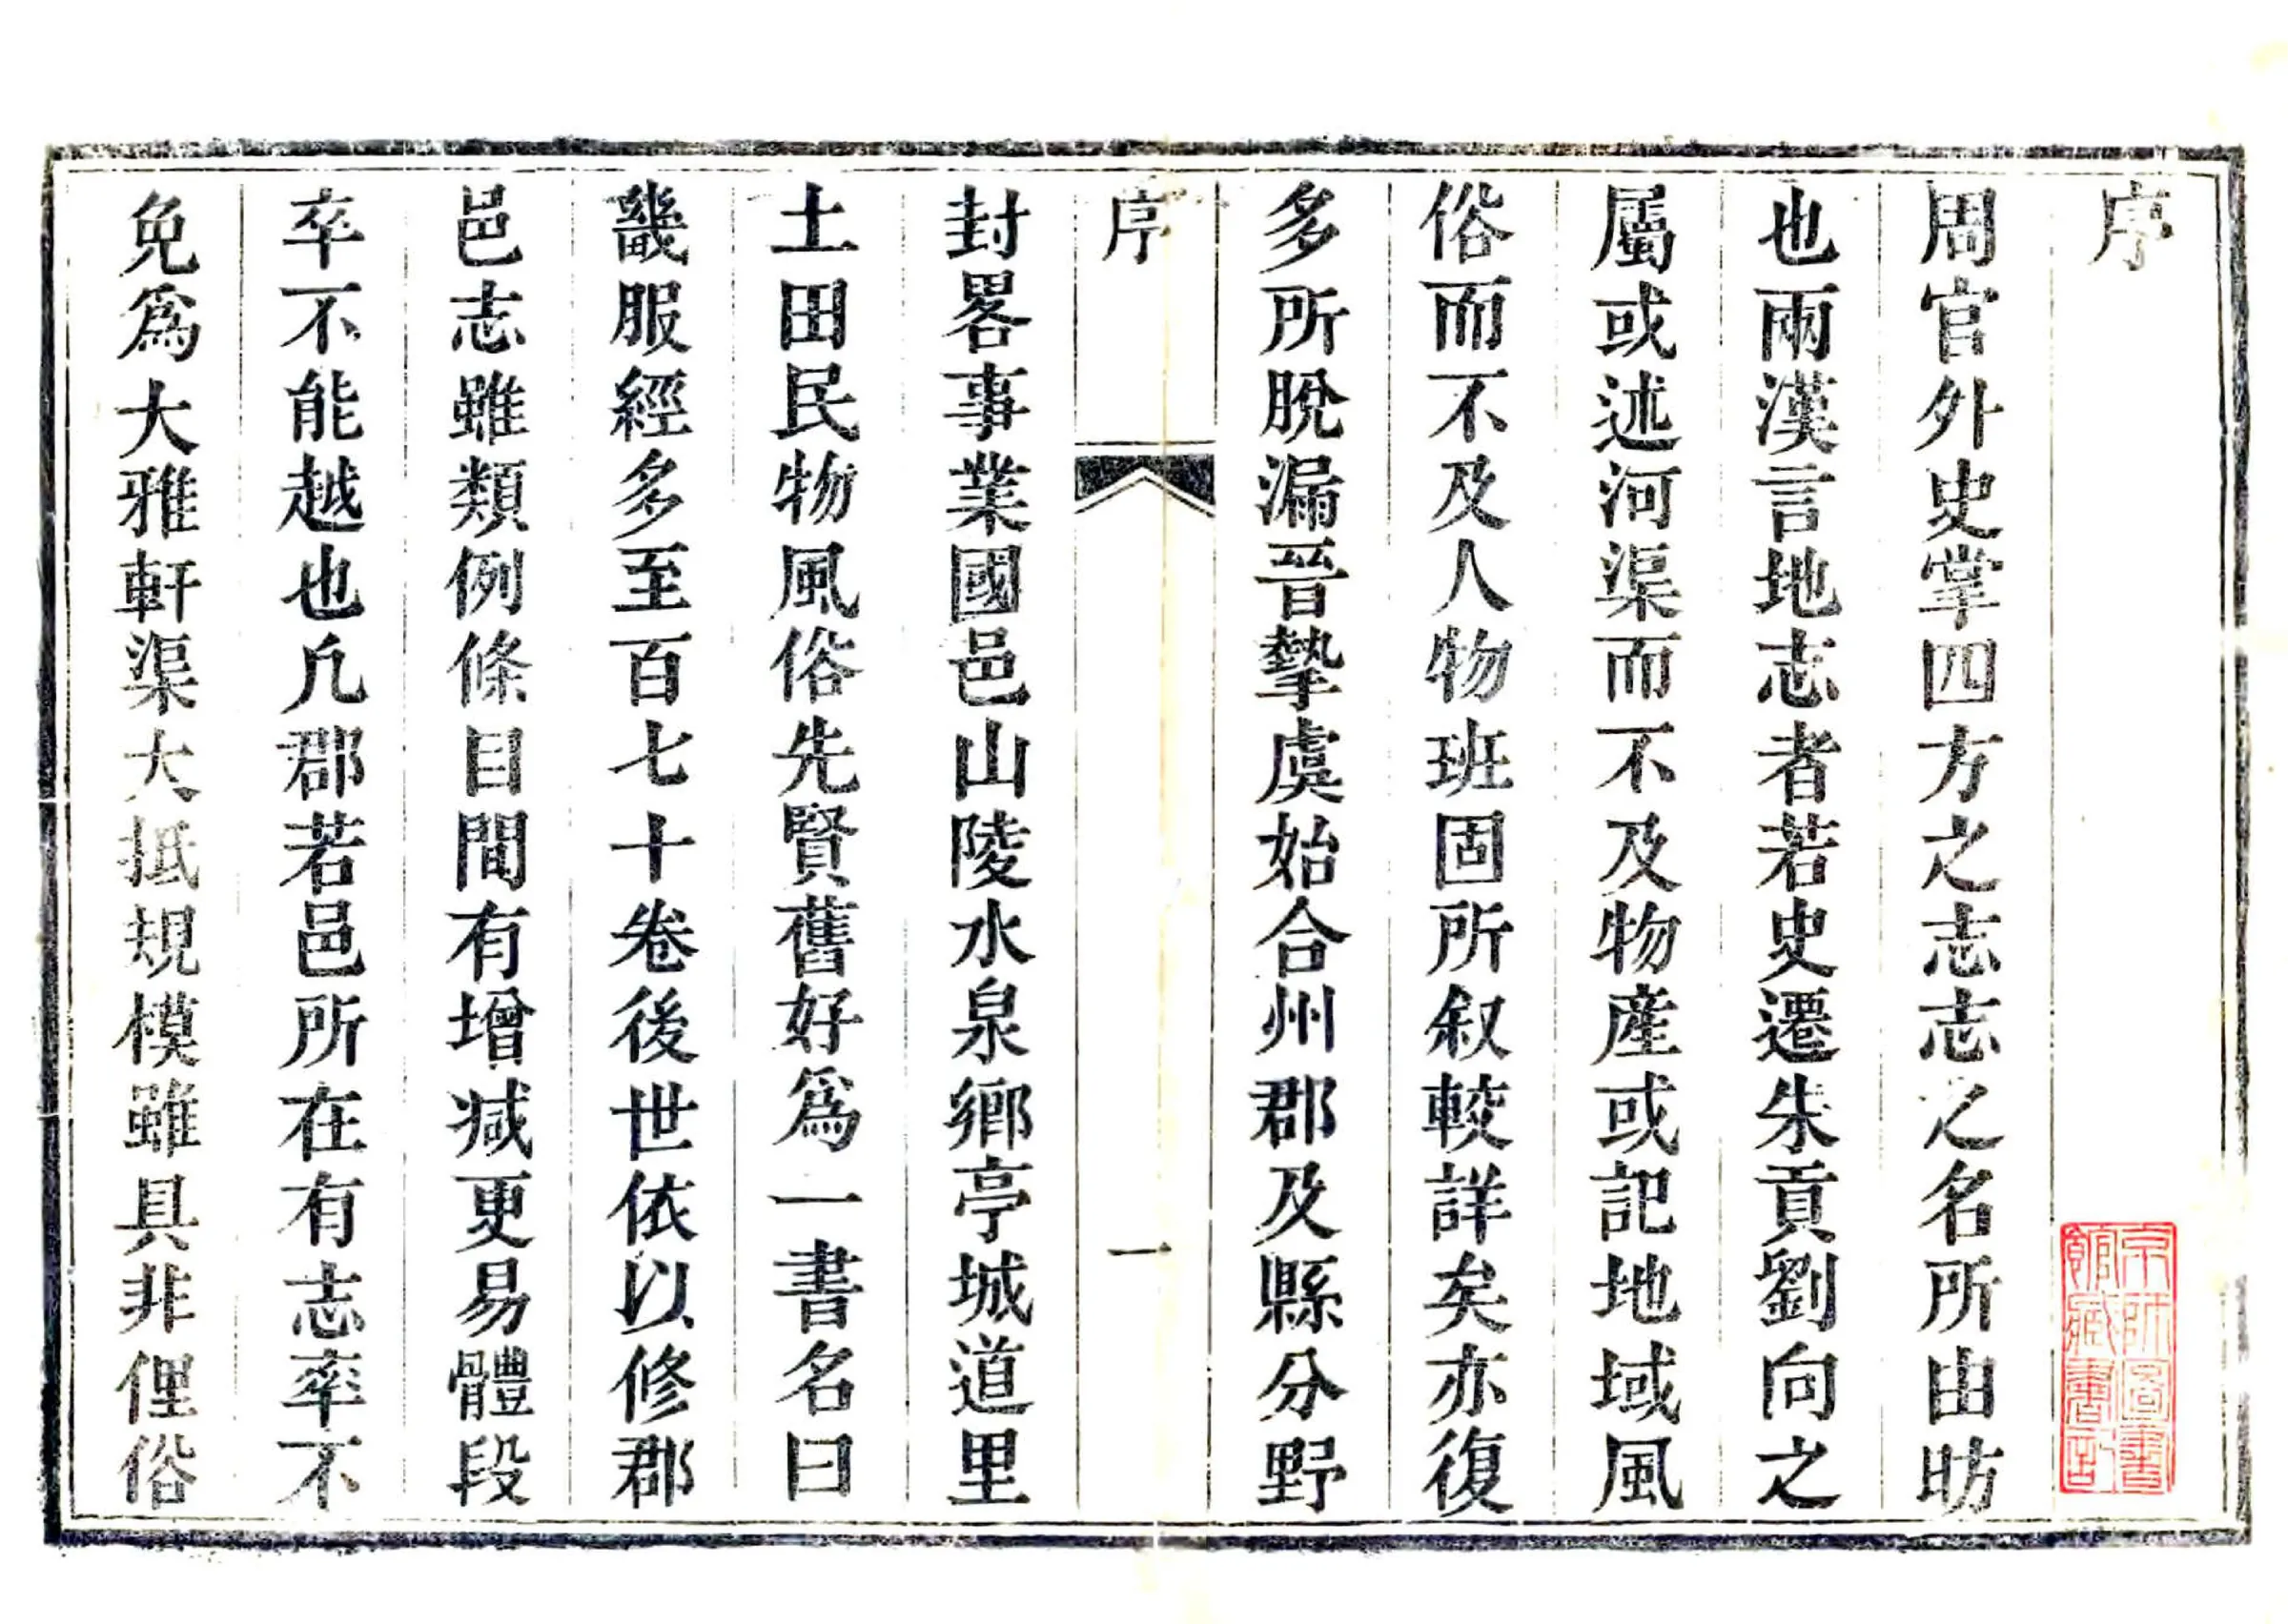 序
周官外史掌四方之志志之名所由昉
也兩漢言地志者若史遷朱貢劉向之
屬或述河渠而不及物産或記地域風
俗而不及人物班固所叙較詳矣亦復
多所脫漏晉摯虞始合州郡及縣分野
序
一
封畧事業國邑山陵水泉鄉亭城道里
土田民物風俗先賢舊好為一書名曰
畿服經多至百七十卷後世依以修郡
邑志雖類例條目間有增减更易體段
卒不能越也凡郡若邑所在有志率不
免為大雅軒渠大抵規模雖具非俚俗
京師圖書
館藏書記